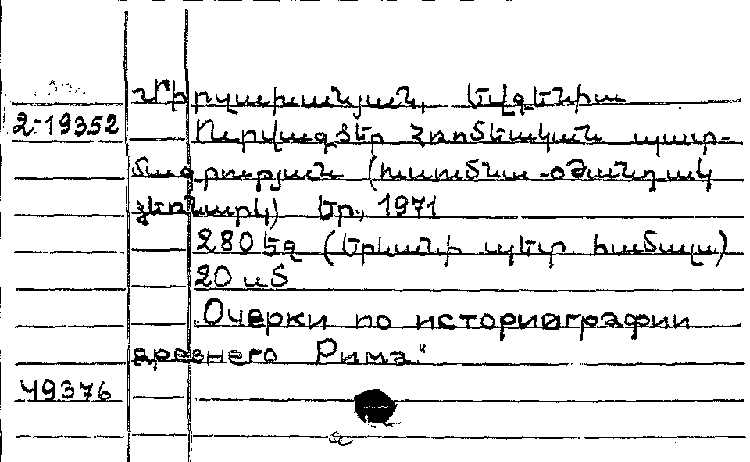 Միրզախանյան, Եվգենիա
2-19352 Ուրվագծեր հռոմեական պատ-
մագրության (ուսումնա-օժանդակ
ձեռնարկ) Եր., 1971
280 եզ (Երևանի պետ. համալս)
20 սմ
Очерки по историографии
древнего Рима"
49376